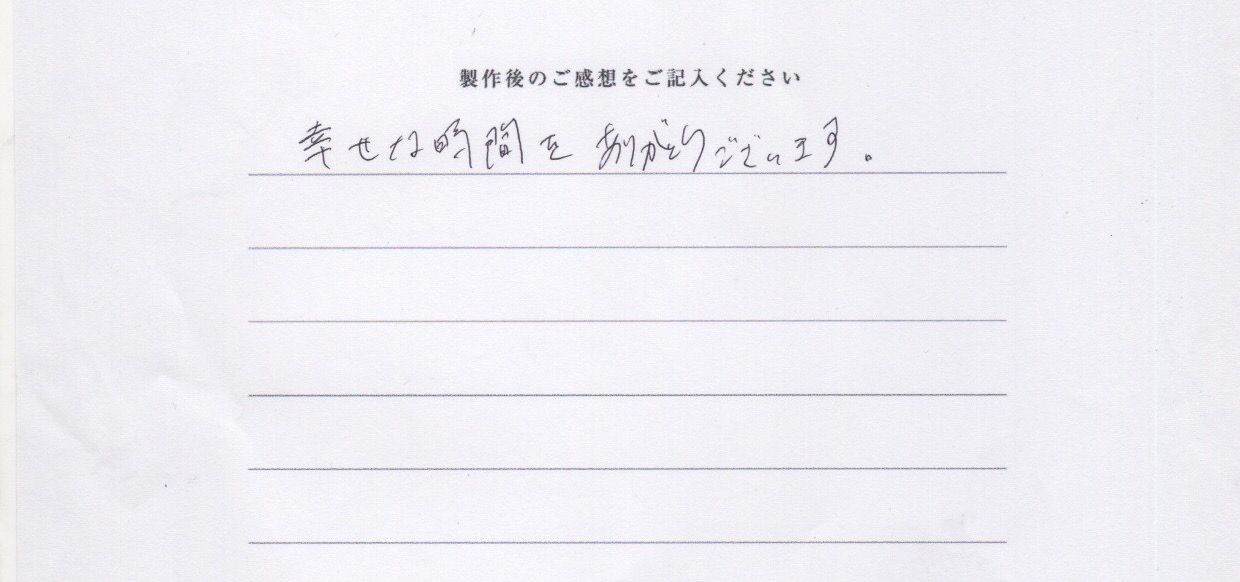 製作後のご感想をご記入ください
幸せな時間を ありがとうございます。